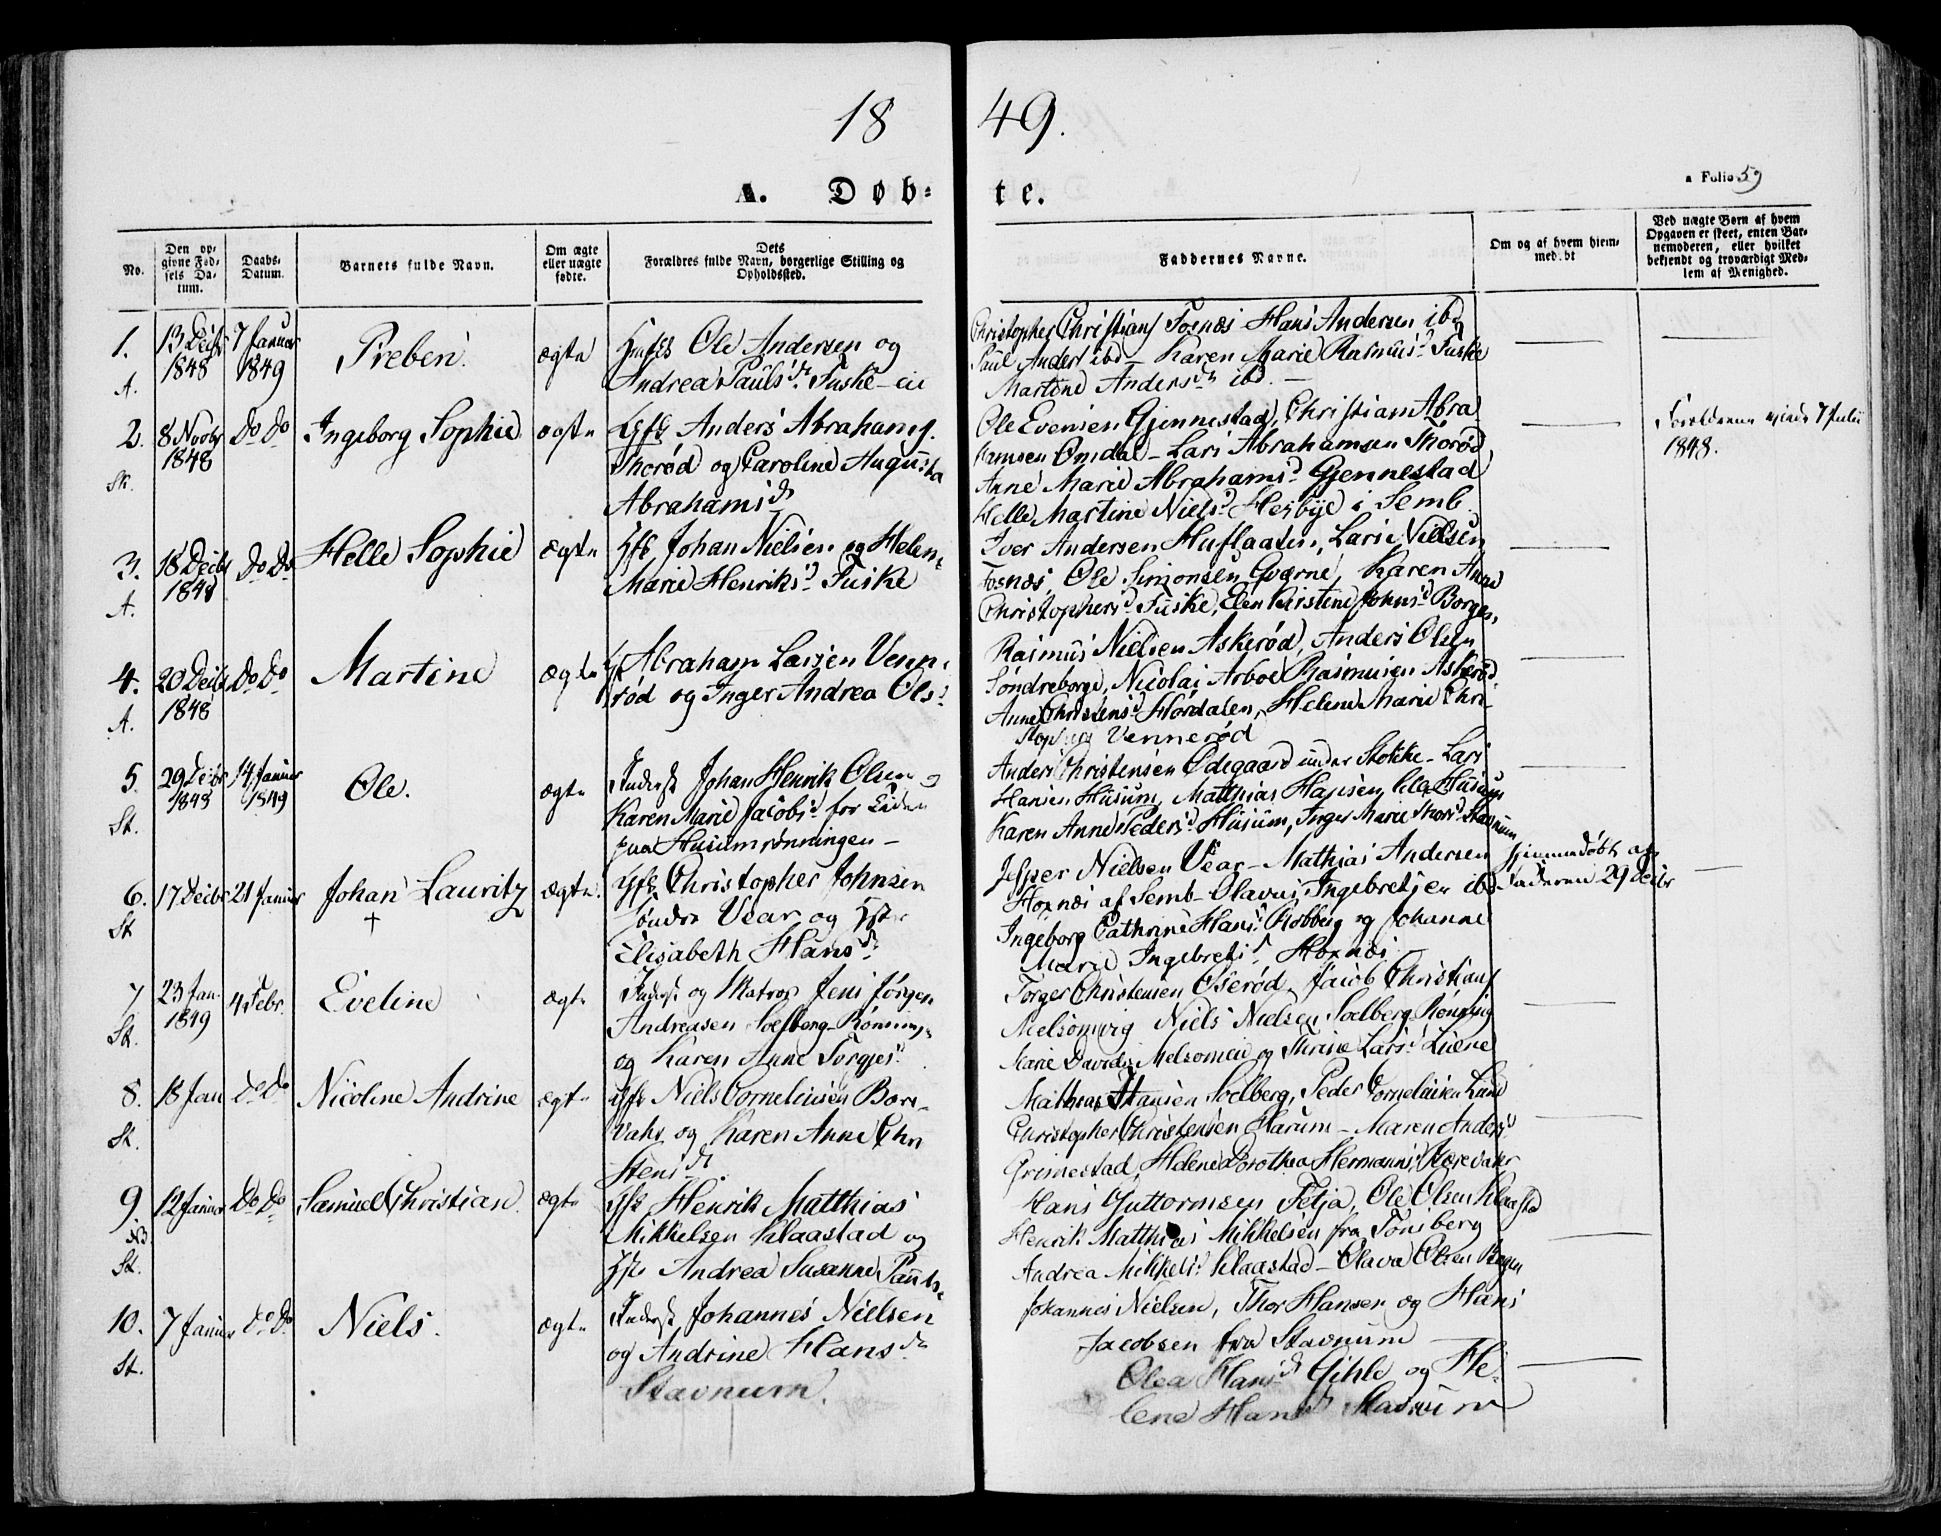 18 49.
A. Døb- te.
a Folio 59
No.
Den op-
givne Fød-
sels Da-
tum.
Daabs-
Datum.
Barnets fulde Navn.
Om ægte
eller uægte
fødte.
Dets
Forældres fulde Navn, borgerlige Stilling og
Opholdssted.
Faddernes Navne.
Om og af hvem hjem-
med.bt
Ved uægte Børn af hvem
Opgaven er skeet, enten Bar-
nemoderen, eller hvilket
bekjendt og troværdigt Med-
lem af Menighed.
1.
A.
13 Decbr
1848
7 Januar
1849
Preben.
ægte
Ole Andersen og
Andrea Pauls Fuske-
Christopher Christians Fosnæs Hans Andersen ibd
Paul Anders ibd - Karen Marie Rasmusd Fuske
Martine Andersdr ibd. -
2.
St.
8 Novbr
1848
Do Do
Ingeborg Sophie
ægte
Gfs Anders Abrahams.
Thorød og Caroline Augusta
Abrahamsdr
Ole Evensen Gjennestad, Christian Abra
hamsen Omdal - Lars Abrahamsen Thorød
Anne Marie Abrahamsd Gjennestad
Helle Martine Nielsd Hesbye i Semb
Forældrene viede 7 Julii
1848.
3.
A.
18 Decbr
1848
Do Do
Helle Sophie
ægte
Gfs Johan Nielsen og Helene
Marie Henriksd Fuske
Iver Andersen Huflaaten, Lars Nielsen
Fosnæs, Ole Simonsen Gværne, Karen Anne
Christophersd Fuske, Elen Kirstine Johnsd Borge,
4.
A.
20 Decbr
1848
Do Do
Martine
ægte
Gf Abraham Larsen Venne-
rød og Inger Andrea Olsd
Rasmus Nielsen Askerød, Anders Olsen
Søndreborge, Nicolai Arboe Rasmusen Askerød
Anne Christensd Hørdalen, Helene Marie Chri-
Vennerød
5.
St.
29 Decbr
1848
14 Januar
1849
Ole.
ægte
Inderst Johan Henrik Olsen og
Karen Marie Jacobsd
paa Husumrønningen -
Anders Christensen Ødegaard under Stokke - Lars
Hansen Husum, Matthias Hansen Husum
Karen Anne Pedersd Husum, Inger Marie Thorsd Stavnum
6.
St
17 Decbr
21 Januar
Johan Lauritz
†
ægte.
Gfs. Christopher Johnsen
Søndre Vear og Hstr
Elisabeth Hansdr
Jesper Nielsen Vear - Mathias Andersen
Hoxnæs af Semb - Olavus Ingebretsen ibd
Ingeborg Cathrine Hansd Robberg og Johanne
Marie Ingebretsd Hoxnæs
Hjemmedøbt af
Faderen 29 Decbr
7
St.
23 Jan.
1849
4 Febr.
Eveline
ægte
Inderst og Matros Jens Jørgen
Andreasen Solberg-Rønning
og Karen Anne Torgjersd
Torger Christensen Oserød, Jacob Christians
Melsomvig Niels Nielsen Solberg Rønning
Marie Davids Melsomvi og Larsd Liene
8.
St.
18 Jan
Do Do
Nicoline Andrine
ægte
Gfs Niels Cornelius​en Bore-
vahr og Karen Anne Chri
stensdr
Mathias Hansen Solberg, Peder Cornelius​en Lund
Christopher Christensen Harum - Maren Andersd
Grimestad, Helene Dorothea Hermannsd Borevahr
9
NB.
St.
12 Januar
Do Do
Samuel Christian
ægte
Gfs Henrik Matthias
Mikkelsen Klaastad og
Hst. Andrea Susanne Paulsd
Hans Guttormsen Fetja, Ole Olsen Klaastad
Henrik Matthias Mikkelsen fra Tønsberg
Andrea Mikkelsd Klaastad - Olava Olsen Bogen
10.
St.
7 Januar
Do Do
Niels.
ægte
Inderst Johannes Nielsen
og Andrine Hansdr
Stavnum.
Johannes Nielsen, Thor Hansen og Hans
Jacobsen fra Stavnum
Olea Hansdr Gihle og He-
lene Hansdr Stavnum